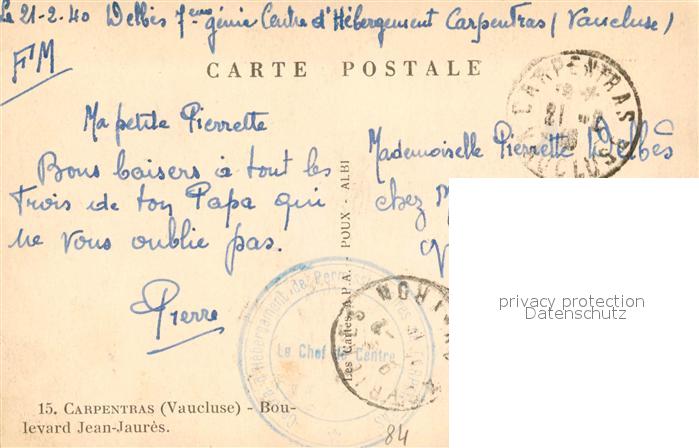 Le 21-2-40 Delbès 7ème génie Centre d'Hébergement Carpentras (Vaucluse)
FM
CARTE POSTALE
CARPENTRAS
VAUCLUSE
Ma petite Pierrette
Bons baisers à tout les
Trois de ton Papa qui
ne vous oublie pas.
Pierre
Mademoiselle Pierrette Delbès
chez M
Les Cartes A.P.A. - POUX - ALBI
Le Chef de Centre
15. CARPENTRAS (Vaucluse) - Bou-
levard Jean-Jaurès.
84
privacy protection
Datenschutz